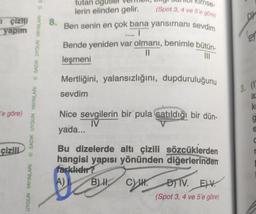 lerin elinden gelir. (Spot 3, 4 ve 5'e göre)
ı çiziti
yapım
8. Ben senin en çok bana yansımanı sevdim
I
Bende yeniden var olmanı, benimle bütün-
II
III
leşmeni
Mertliğini, yalansızlığını, dupduruluğunu
sevdim
'e göre)
Nice sevgilerin bir pula satıldığı bir dün-
IV
V
yada...
çizili
Bu dizelerde altı çizili sözcüklerden
hangisi yapısı yönünden diğerlerinden
farklıdır?
A) I. B) II. C) III. D) IV. E) V.
(Spot 3, 4 ve 5'e göre)
SADIK UYGUN YAYINLARI